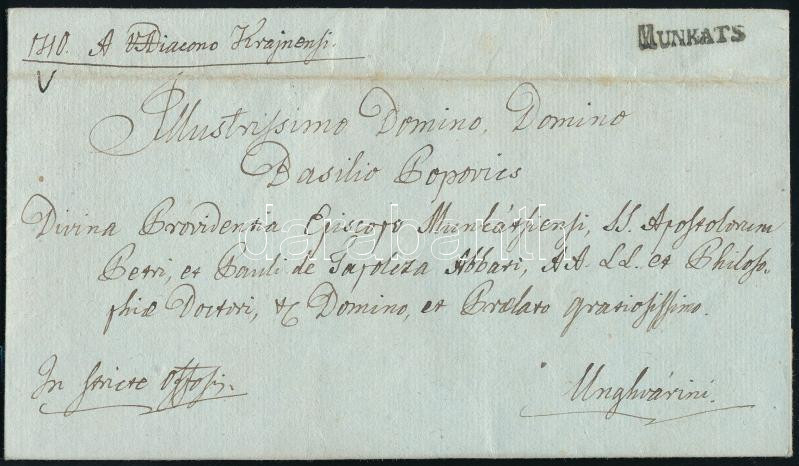 1710. A VADiacono Krajnensi.
MUNKATS
V
Illustrissimo Domino, Domino
Basilio Popovics
Divina Providentia Episcopo Munkátsiensi, SS. Apostolorum
Petri, et Pauli de Tapolcza Abbati, AA. LL. et Philoso-
phiæ Doctori, &c Domino, et Prælato gratiosissimo.
In stricte Offosis.
Unghvárini.
darabanth